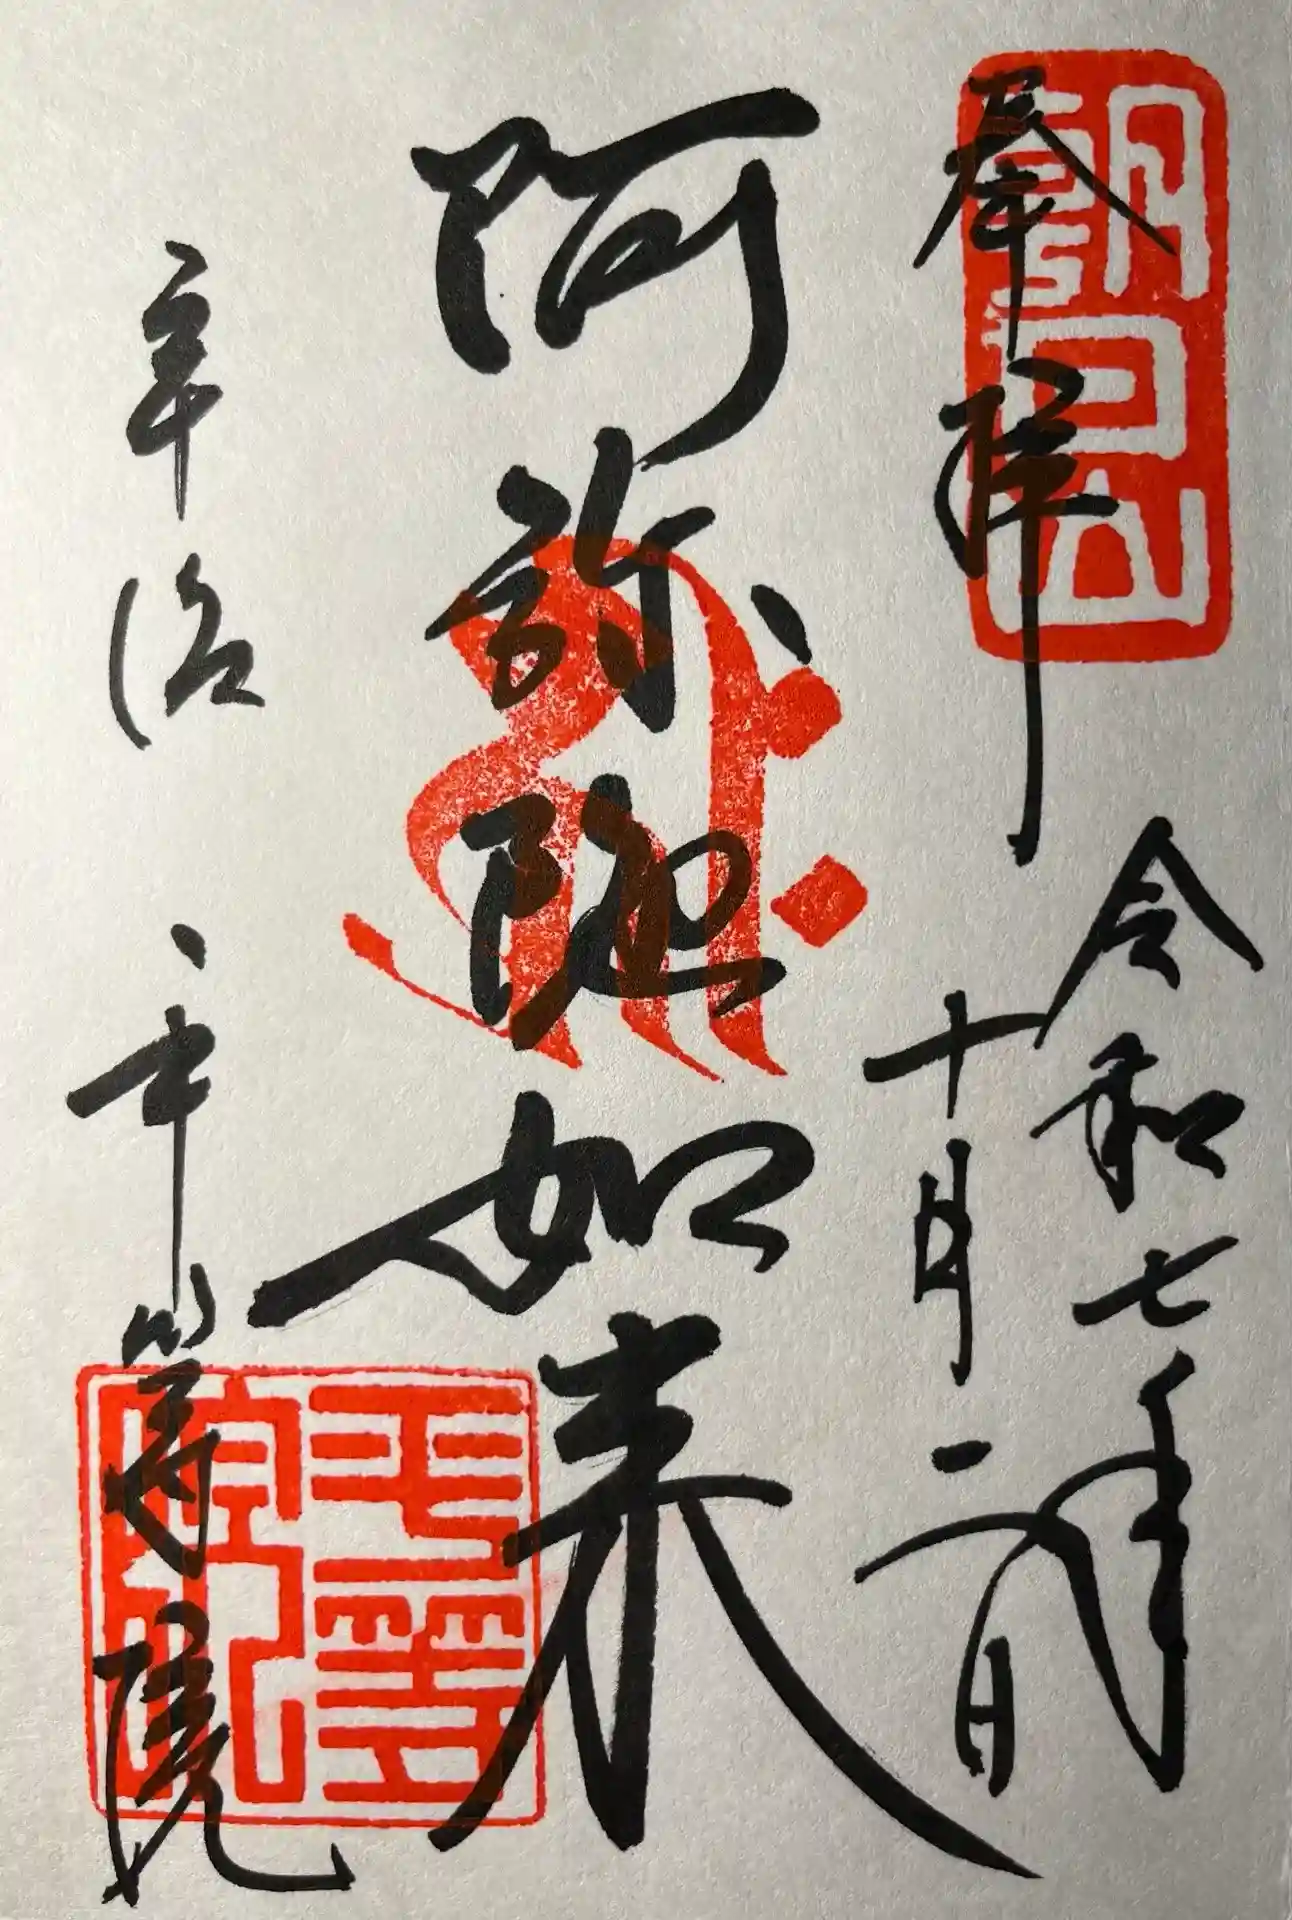 奉拝
朝日山
令和七年
十月二日
阿弥陀如来
宇治
平等院
平等院印